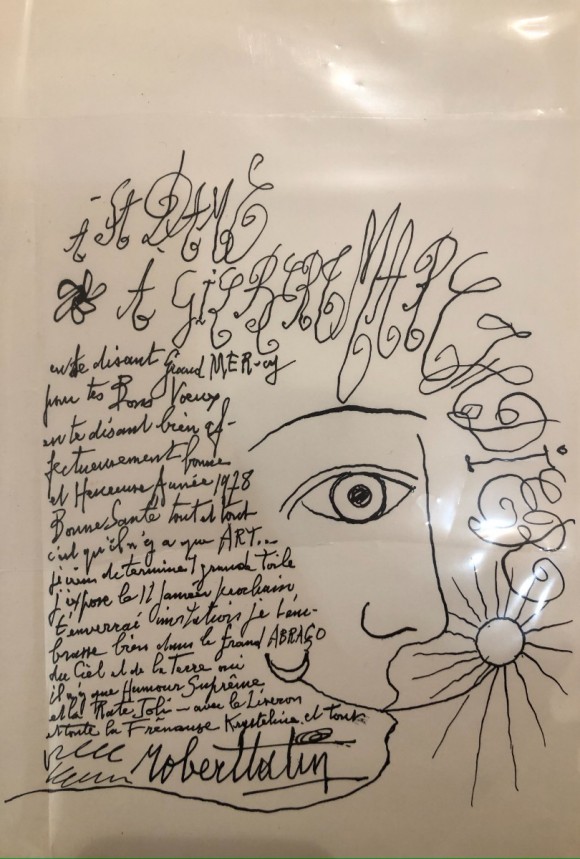 A SA DAME
A GIERRE MARIE
DIEE
en te disant Grand MER-cy
pour tes Bons Voeux
en te disant bien af-
fectueusement bonne
et Heureuse Année 1978
Bonne Santé tout et tout
c'est qu'il n'y a que ART..
je viens de terminer 1 grande toile
j'expose le 12 Janvier prochain
t'enverrai invitations je t'em-
brasse bien dans le grand ABRAÇO
du Ciel et de la Terre oui
il n'y que Humour Suprême
et la Joli - avec le Liseron
et toute la Frênouse et tout
Robert Tatin